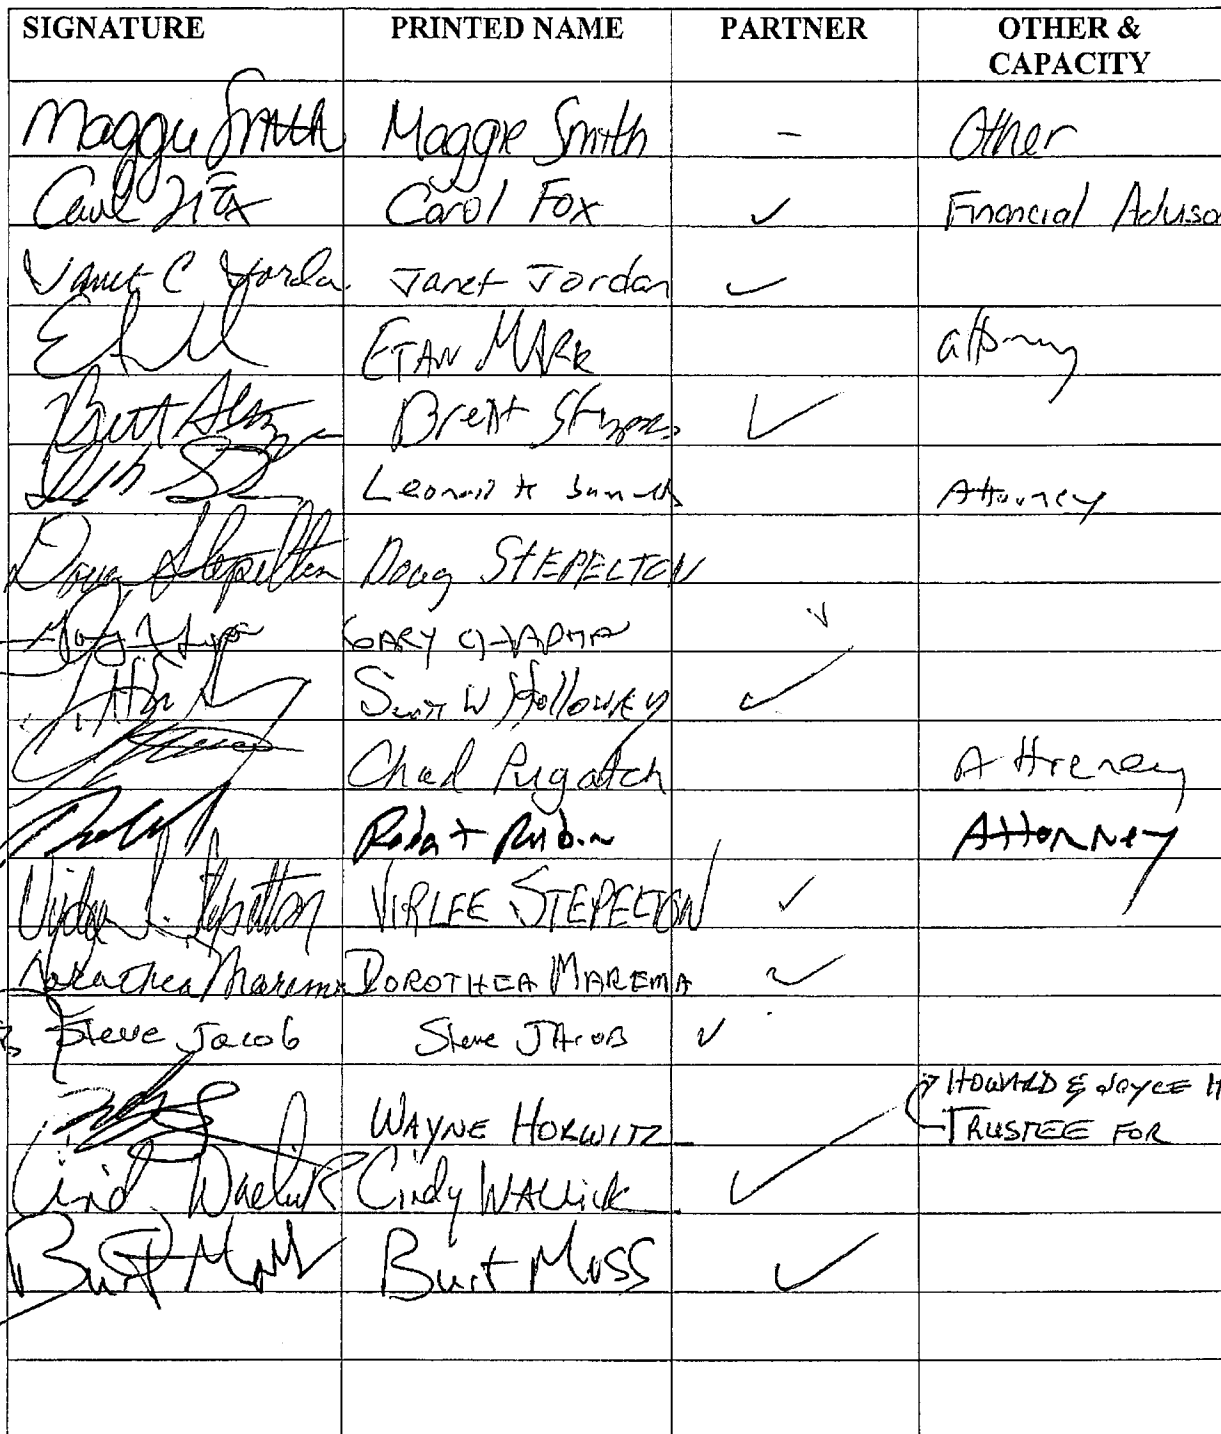 SIGNATURE PRINTED NAME PARTNER OTHER & CAPACITY
Maggie Smith Maggie Smith - Other
Carol Fox Carol Fox ✓ Financial Adviso
Janet C Jorda Janet Jordan ✓
ETAN MARK attorney
Brett Brett ✓
Attorney
Doug Stepelton Doug STEPELTON
GARY ✓
Scott W Holloway ✓
Chad Pugatch Attorney
Robert Rubin Attorney
Virlee L. Stepelton VIRLEE STEPELTON ✓
Dorothea Marema DOROTHEA MAREMA ✓
Steve Jacob Steve JACOB ✓
WAYNE HORWITZ HOWARD & JOYCE H
TRUSTEE FOR
Cindy Wallick Cindy WALLICK ✓
Burt Moss Burt Moss ✓